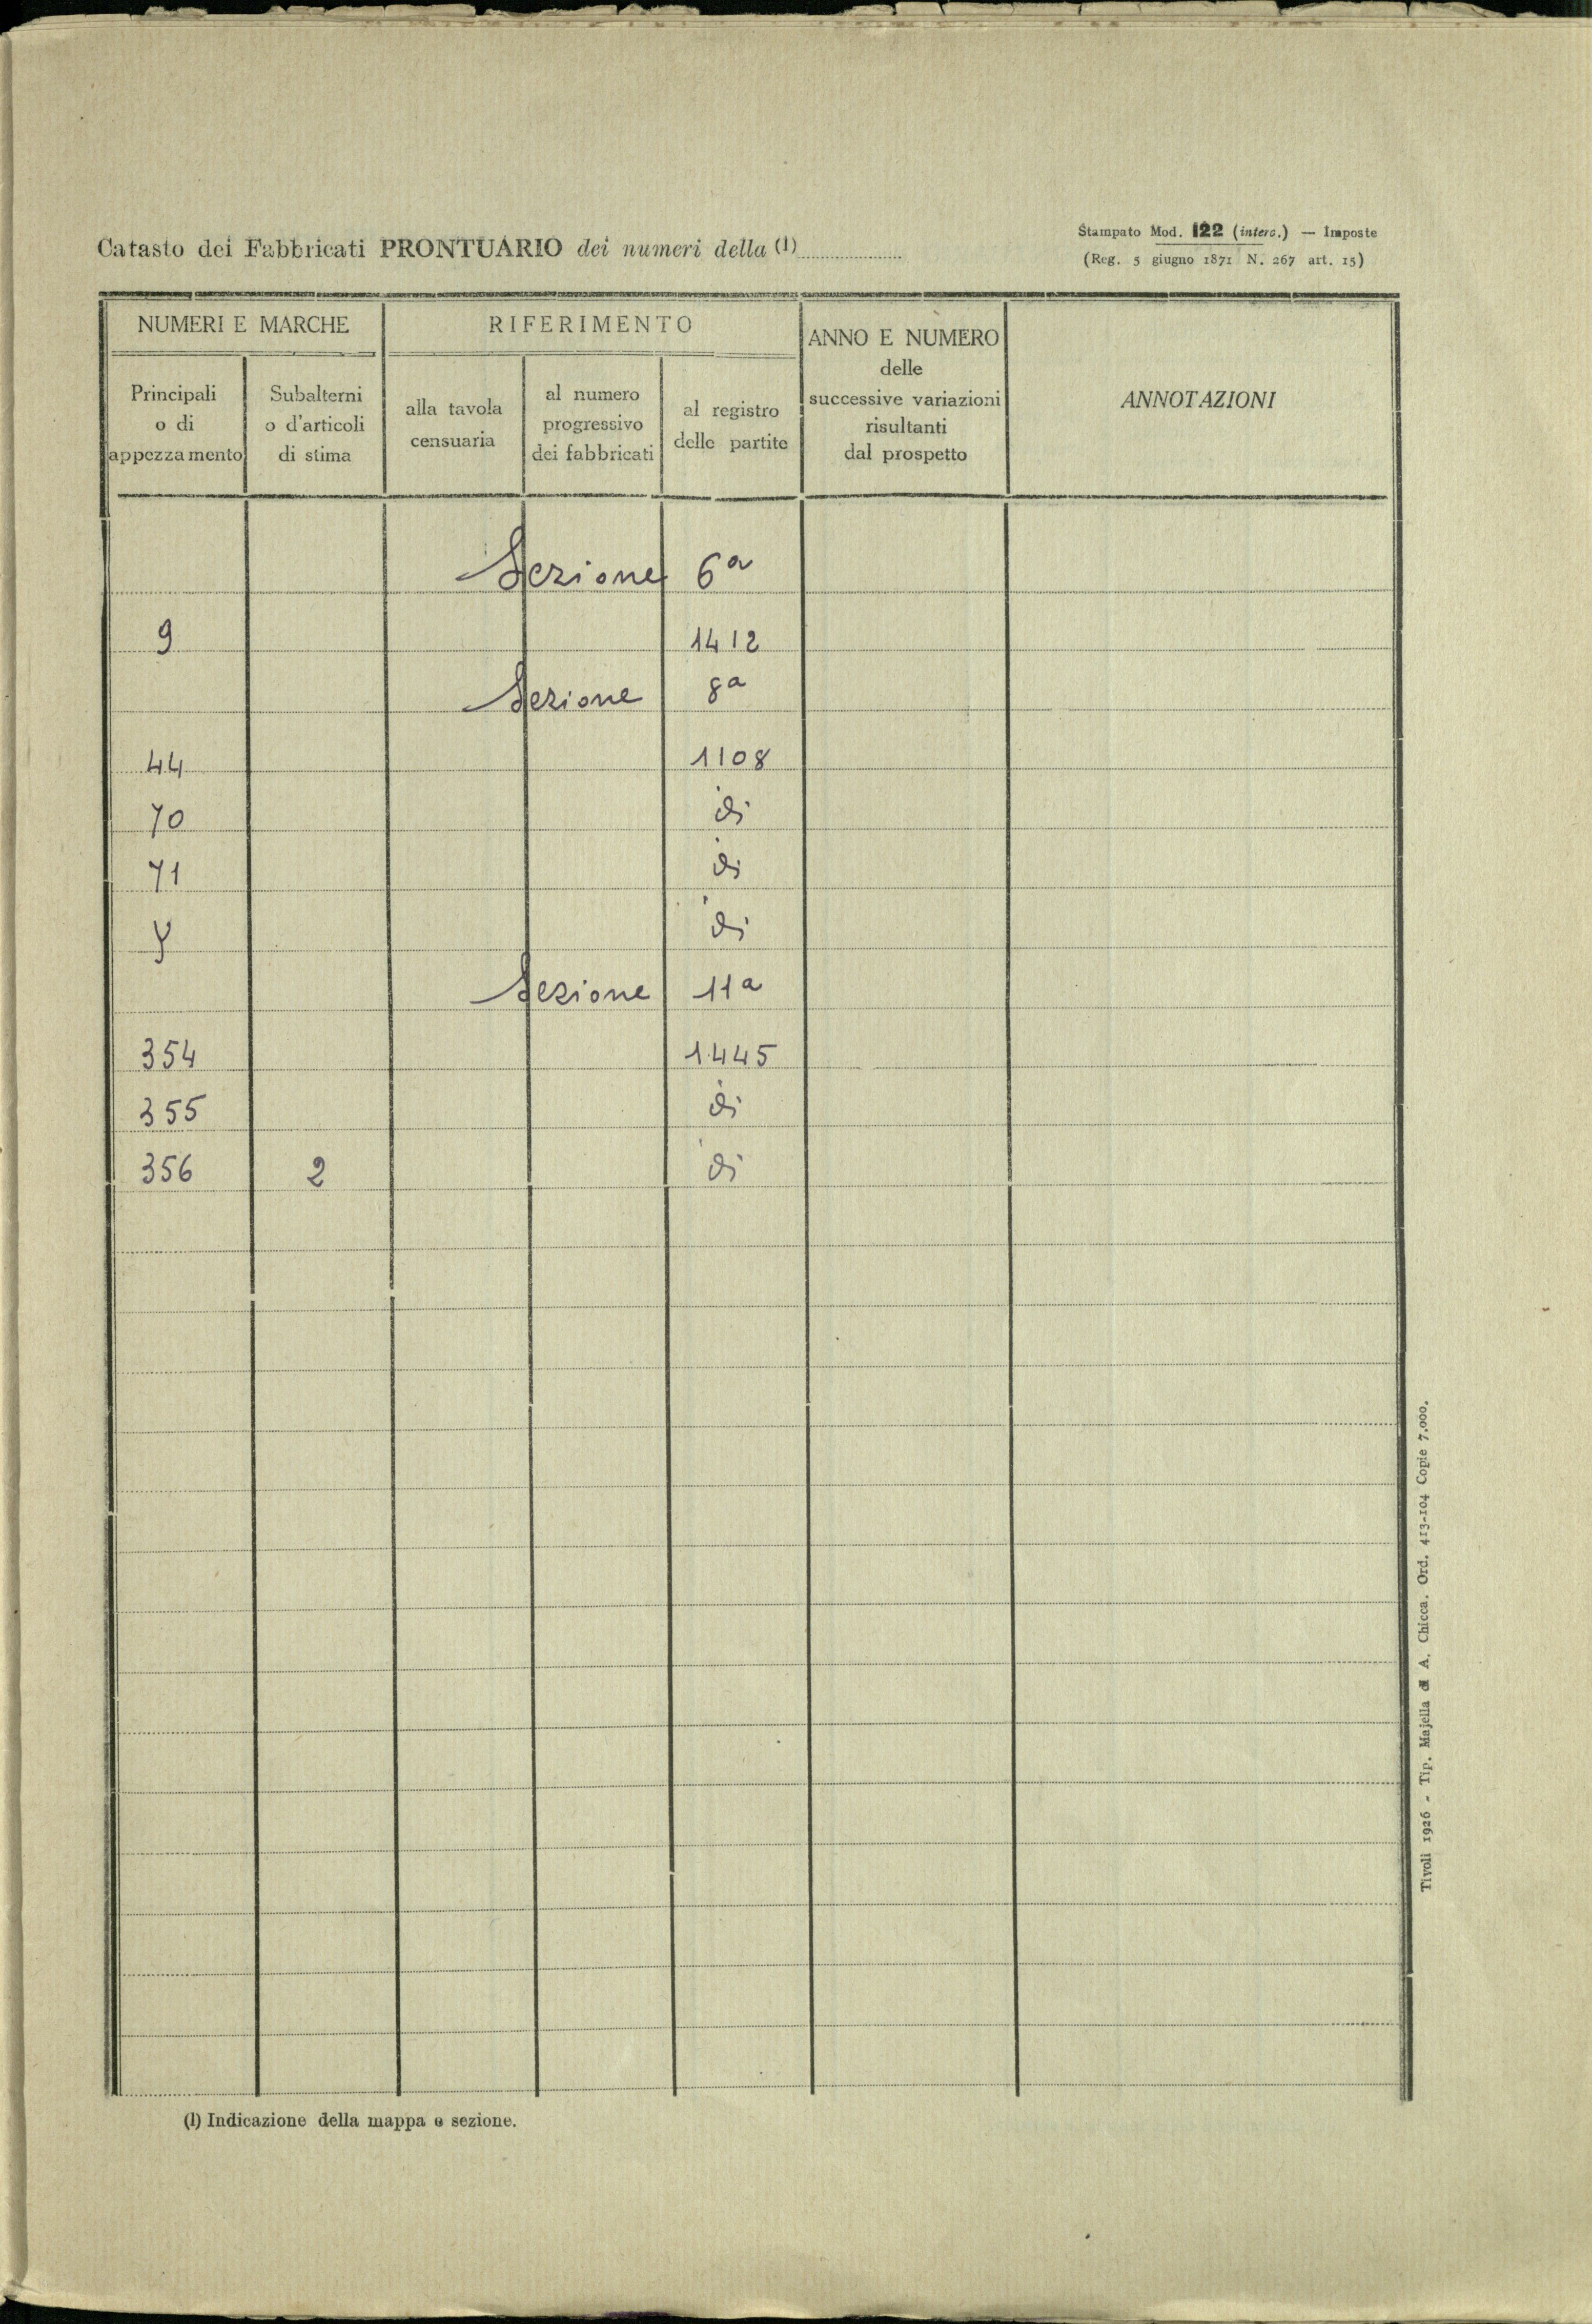 Catasto dei Fabbricati PRONTUARIO dei numeri della (1)
Stampato Mod. 122 (interc.) — Imposte
(Reg. 5 giugno 1871 N. 267 art. 15)
NUMERI E MARCHE
RIFERIMENTO
ANNO E NUMERO
delle
successive variazioni
risultanti
dal prospetto
ANNOTAZIONI
Principali
o di
appezzamento
Subalterni
o d'articoli
di stima
alla tavola
censuaria
al numero
progressivo
dei fabbricati
al registro
delle partite
Sezione 6a
9 1412
Sezione 8a
44 1108
70 di
71 di
di
Sezione 11a
354 1445
355 di
356 2 di
(1) Indicazione della mappa e sezione.
Tivoli 1926 - Tip. Majella di A. Chicca. Ord. 413-104 Copie 7.000.